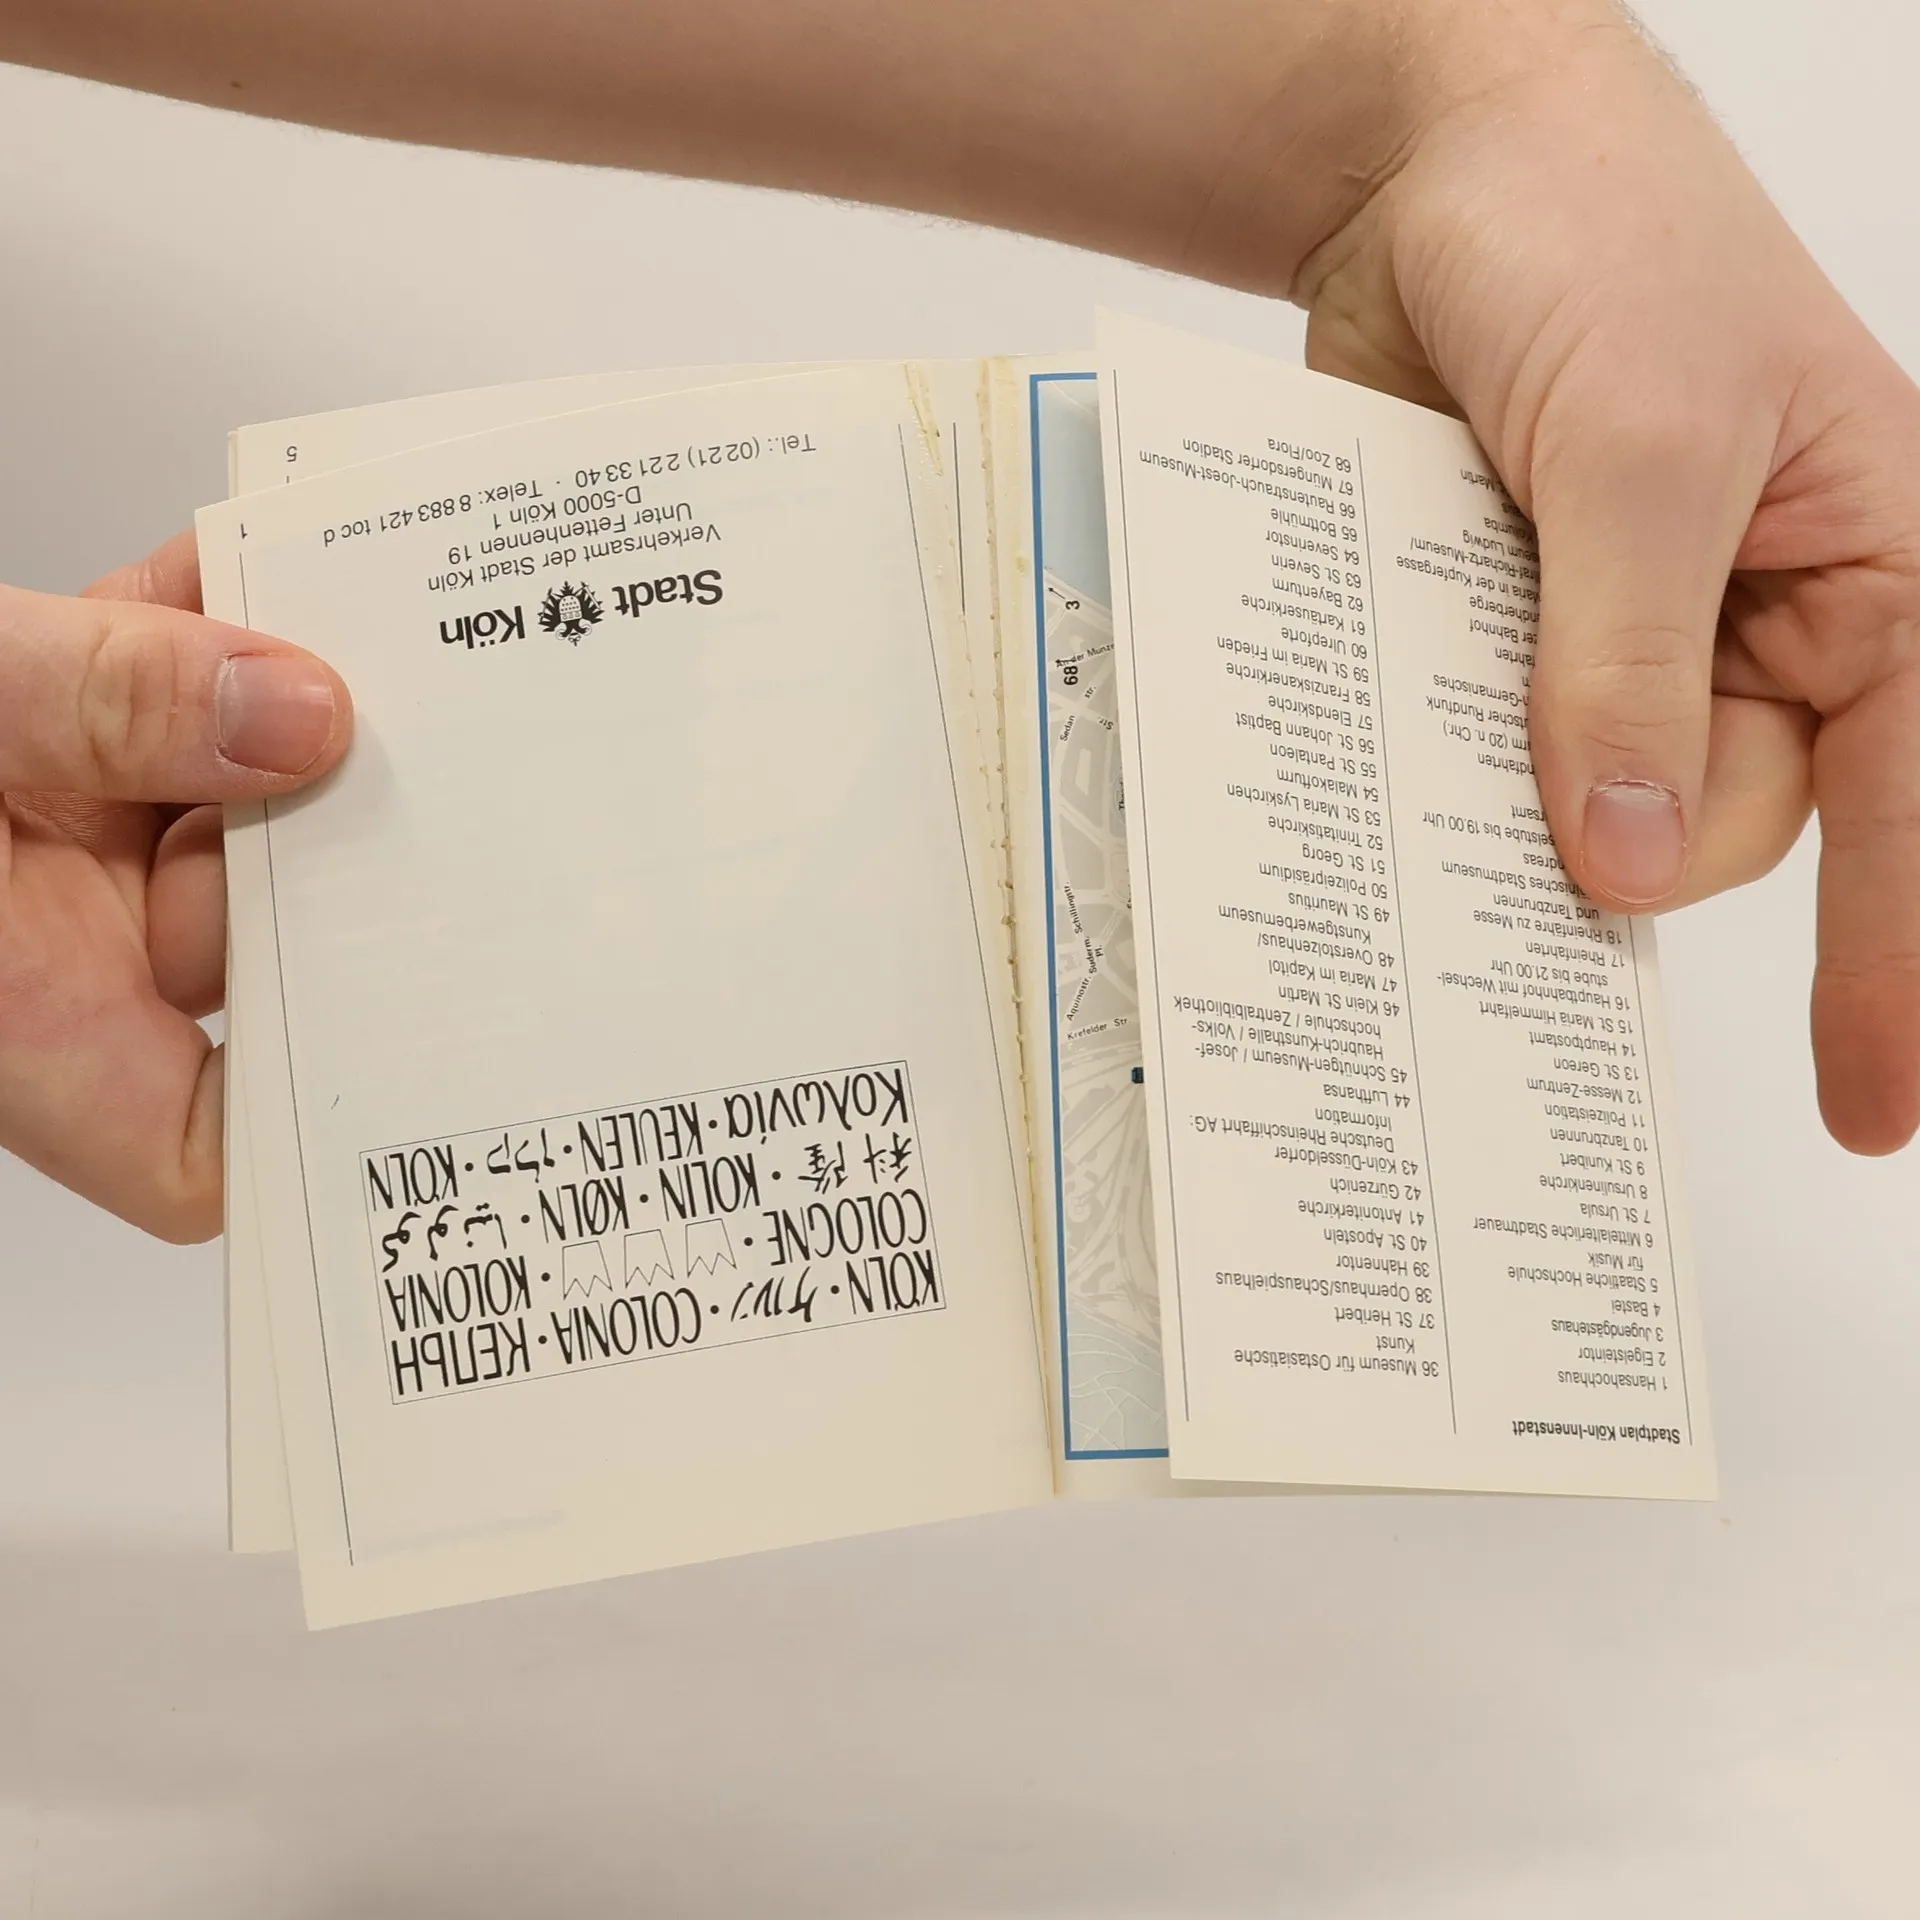 Stadtplan Köln-Innenstadt
1 Hansahochhaus
2 Eigelsteintor
3 Jugendgästehaus
4 Bastei
5 Staatliche Hochschule
für Musik
6 Mittelalterliche Stadtmauer
7 St. Ursula
8 Ursulinenkirche
9 St. Kunibert
10 Tanzbrunnen
11 Polizeistation
12 Messe-Zentrum
13 St. Gereon
14 Hauptpostamt
15 St. Mariä Himmelfahrt
16 Hauptbahnhof mit Wechsel-
stube bis 21.00 Uhr
17 Rheinfahrten
18 Rheinfähre zu Messe
und Tanzbrunnen
Stadtmuseum
bis 19.00 Uhr
(20 n. Chr.)
Rundfunk
Bahnhof
Maria in der Kupfergasse
Ludwig
Kolumba
Martin
36 Museum für Ostasiatische
Kunst
37 St. Heribert
38 Opernhaus/Schauspielhaus
39 Hahnentor
40 St. Aposteln
41 Antoniterkirche
42 Gürzenich
43 Köln-Düsseldorfer
Deutsche Rheinschiffahrt AG:
Information
44 Lufthansa
45 Schnütgen-Museum / Josef-
Haubrich-Kunsthalle / Volks-
hochschule / Zentralbibliothek
46 Klein St. Martin
47 Maria im Kapitol
48 Overstolzenhaus/
Kunstgewerbemuseum
49 St. Mauritius
50 Polizeipräsidium
51 St. Georg
52 Trinitatiskirche
53 St. Maria Lyskirchen
54 Malakofturm
55 St. Pantaleon
56 St. Johann Baptist
57 Elendskirche
58 Franziskanerkirche
59 St. Maria im Frieden
60 Ulrepforte
61 Kartäuserkirche
62 Bayenturm
63 St. Severin
64 Severinstor
65 Bottmühle
66 Rautenstrauch-Joest-Museum
67 Müngersdorfer Stadion
68 Zoo/Flora
Krefelder Str
Aquinostr.
Suderm. Pl.
Schillingstr.
Sedan str.
An der Münze
68
3
KÖLN · ケルン · COLONIA · КЕЛЬН
COLOGNE · KOLONIA
科隆 · KOLIN · KØLN · كولونيا
Κολωνία · KEULEN · KÖLN
Stadt Köln
Verkehrsamt der Stadt Köln
Unter Fettenhennen 19
D-5000 Köln 1
Tel.: (0221) 221 33 40 · Telex: 8 883 421 toc d
1
5